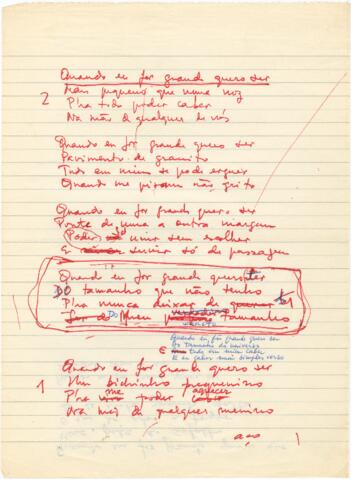 Quando eu for grande quero ser
Mais pequeno que uma noz
2
P'ra tudo poder caber
Na mão de qualquer de vós
Quando eu for grande quero ser
Pavimento de granito
Tudo em mim se pode erguer
Quando me pisam não grito
Quando eu for grande quero ser
Ponte de uma a outra margem
Poder unir sem escolher
E servir só de passagem
Quando eu for grande quero ter
DO tamanho que não tenho
P'ra nunca deixar de ser
DO meu verdadeiro tamanho
Quando eu for grande quero ser
Do tamanho do universo
E tudo em mim caber
E eu caber num simples verso
Quando eu for grande quero ser
1
Um bichinho pequenino
P'ra me poder aquecer
Na mão de qualquer menino